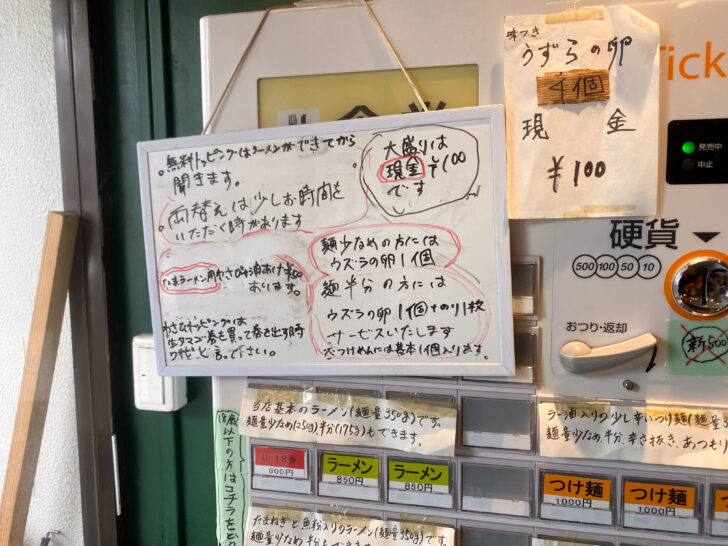 味つき
うずらの卵
4個
現金
¥100
Tick
発売中
中止
硬貨
500 100 50 10
おつり・返却
新500
。無料トッピングはラーメンができてから
聞きます。
。両替えは少しお時間を
いただく時があります
大盛りは
現金¥100
です
麺少なめの方には
ウズラの卵1個
麺半分の方には
ウズラの卵1個+のり1枚
サービスいたします
つけめんには基本1個入ります。
おります。
生タマゴ巻き買って巻き出す時
ワサビと言って下さい。
当店基本のラーメン(麺量350g)です。
麺量少なめ(250g)、半分(175g)もできます。
ラー油入りの少し辛いつけ麺(麺量3
麺量少なめ、半分、辛さ抜き、あつもり
18歳以下の方はコチラを
U-18券
600円
ラーメン
850円
ラーメン
850円
つけ麺
1000円
つけ麺
1000円
たまねぎと魚粉入りのラーメン(麺量350g)です